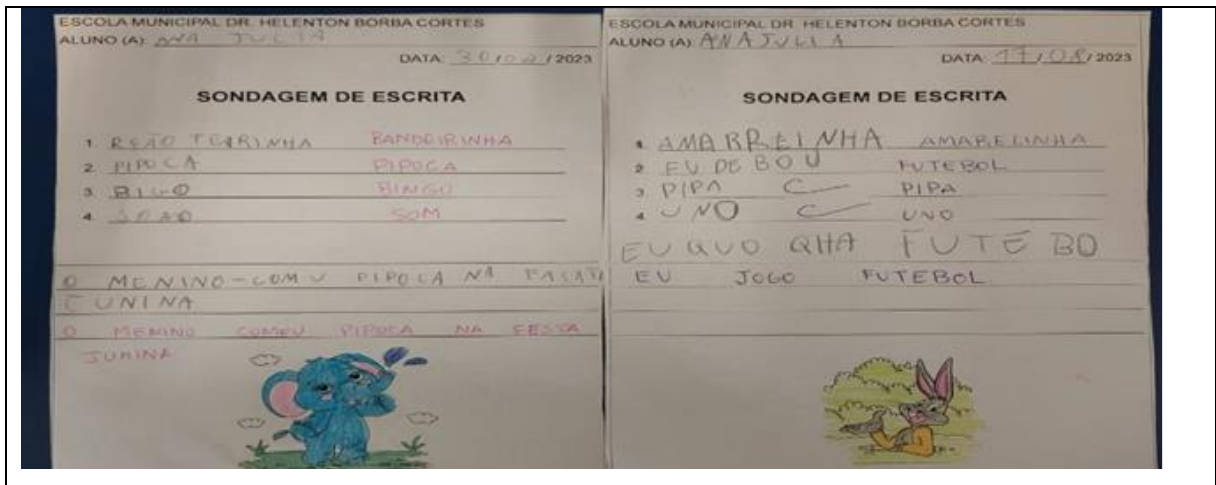 ESCOLA MUNICIPAL DR. HELENTON BORBA CORTES
ALUNO (A): ANA JULIA
DATA: 30 / 2023
SONDAGEM DE ESCRITA
1. TERRINHA BANDEIRINHA
2. PIPOCA PIPOCA
3. BIGO BINGO
4. SOM
O MENINO-COMU PIPOCA NA
UNINA
O MENINO COMEU PIPOCA NA FESTA
JUNINA
ESCOLA MUNICIPAL DR. HELENTON BORBA CORTES
ALUNO (A): ANA JULIA
DATA: 17 / 08 / 2023
SONDAGEM DE ESCRITA
1. AMARRELNHA AMARELINHA
2. EU DE BOU FUTEBOL
3. PIPA C PIPA
4. UNO C UNO
EU QUO QHA FUTE BO
EU JOGO FUTEBOL